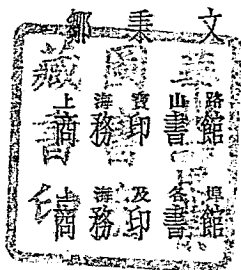 鄒秉文
上海寶山路
商務印書館
上海及各埠
商務印書館